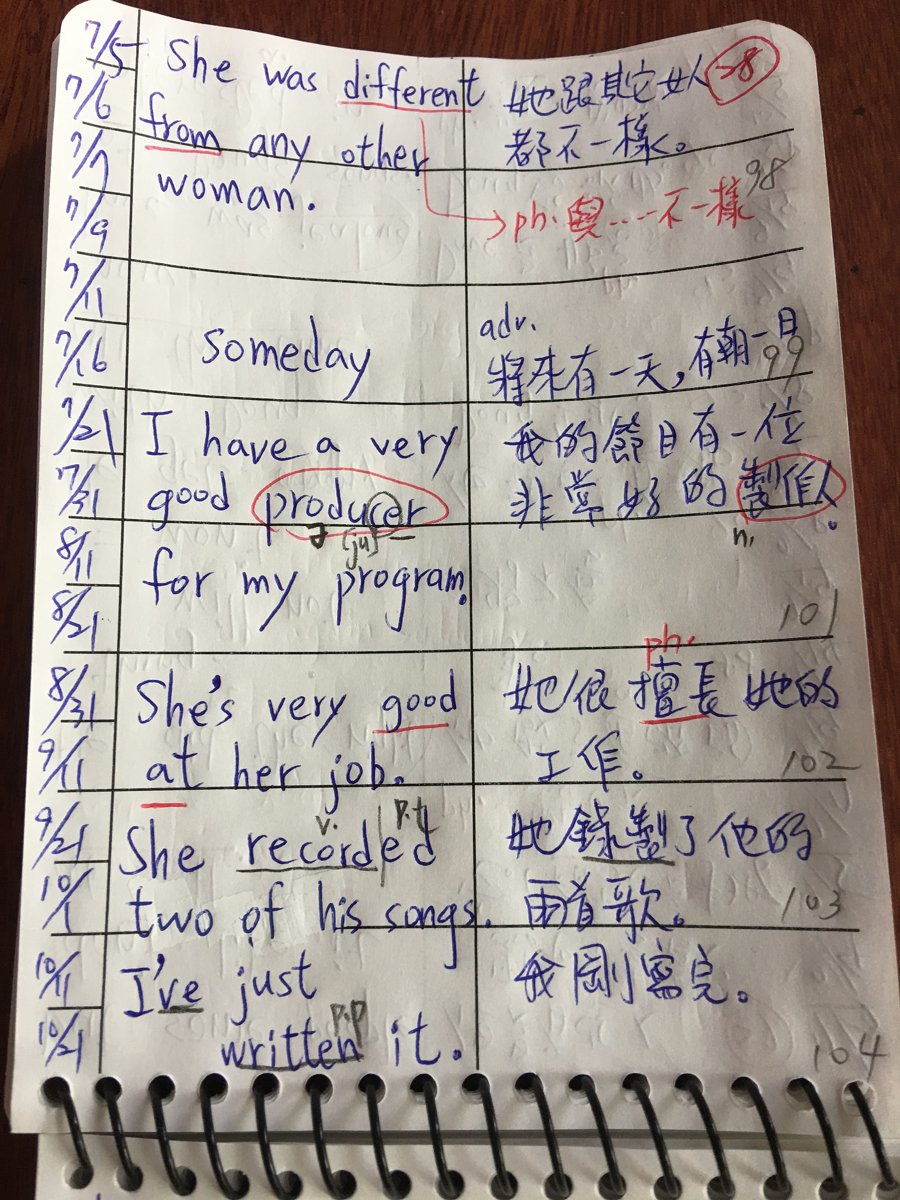 7/5
7/6
7/7
7/9
7/11
7/16
7/21
7/31
8/11
8/21
8/31
9/11
9/21
10/1
10/11
10/21
She was different
from any other
woman.
她跟其它女人
都不一樣。
98
→ph. 與……不一樣
someday
adv.
將來有一天,有朝一日
99
I have a very
good producer
[ju]
for my program.
我的節目有一位
非常好的製作人。
n.
101
She's very good
at her job.
ph.
她很擅長她的
工作。
102
v. p.t
She recorded
two of his songs.
她錄製了他的
兩首歌。
103
I've just
p.p
written it.
我剛寫完。
104